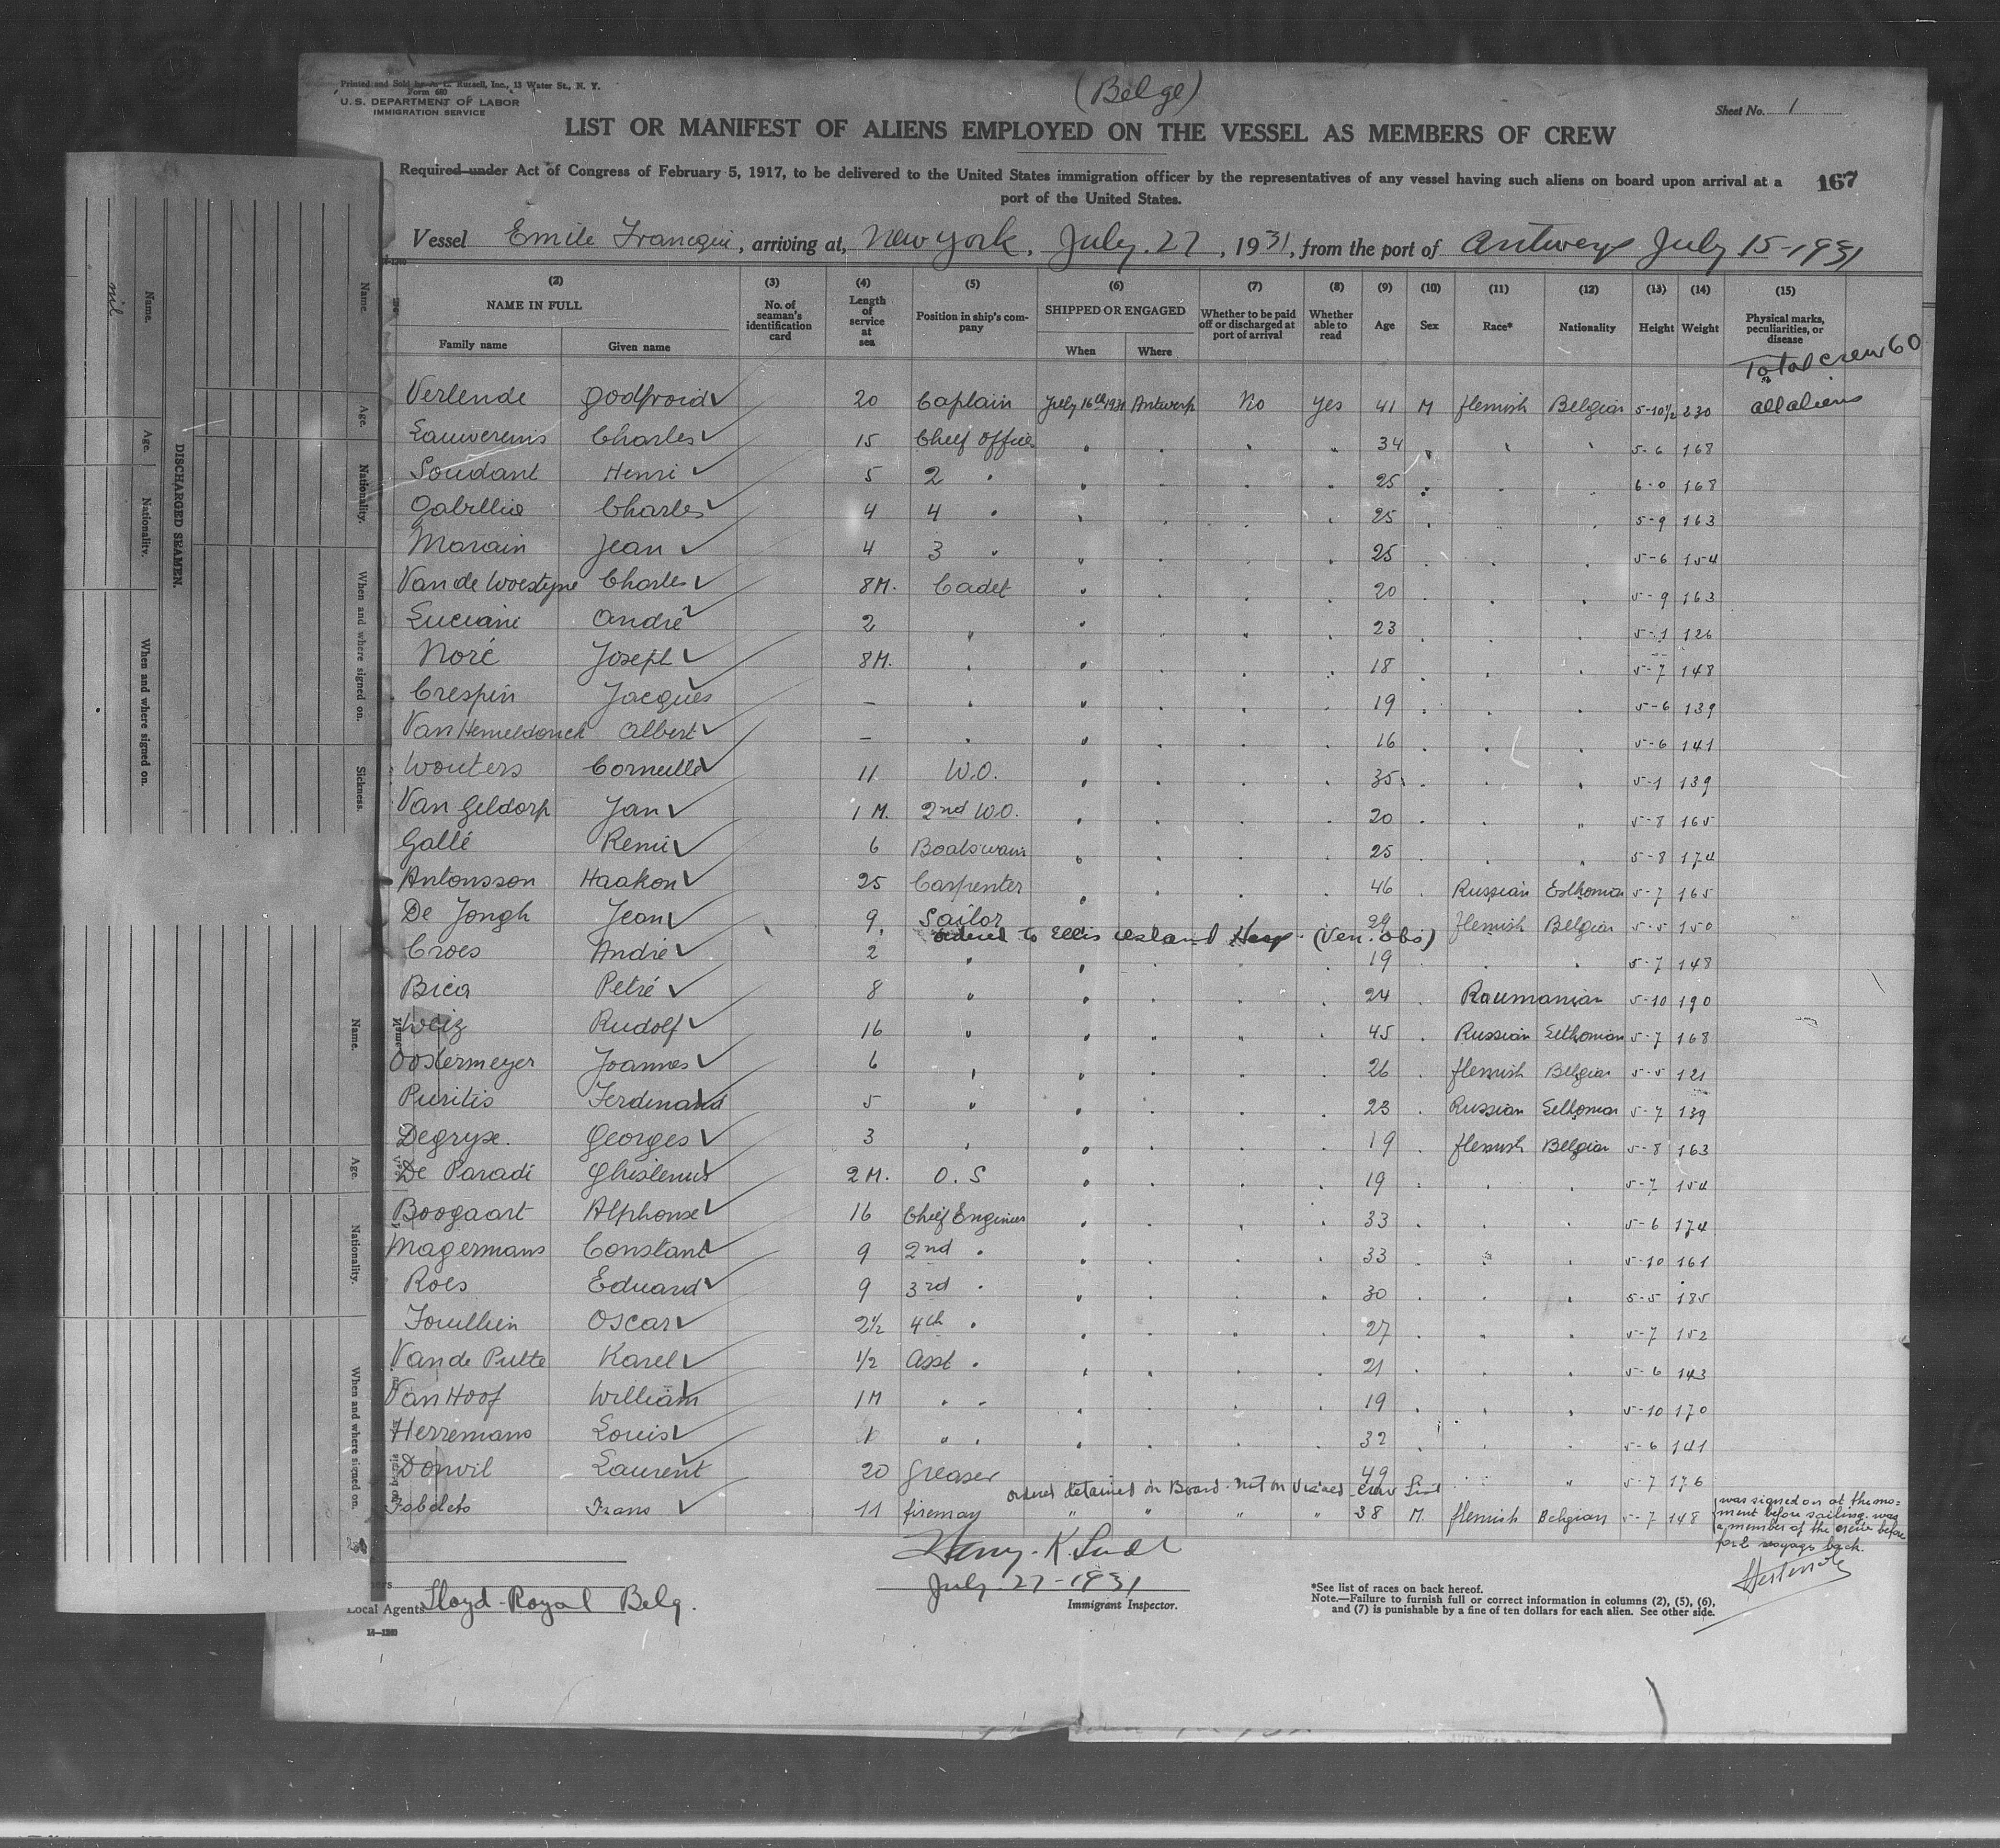 Printed and Sold by A. E. Russell, Inc., 13 Water St., N. Y.
Form 680
U. S. DEPARTMENT OF LABOR
IMMIGRATION SERVICE
(Belge)
Sheet No. 1
LIST OR MANIFEST OF ALIENS EMPLOYED ON THE VESSEL AS MEMBERS OF CREW
Required under Act of Congress of February 5, 1917, to be delivered to the United States immigration officer by the representatives of any vessel having such aliens on board upon arrival at a
port of the United States.
167
Vessel Emile Francqui, arriving at, New York, July. 27, 1931, from the port of Antwerp July 15-1931
(2) (3) (4) (5) (6) (7) (8) (9) (10) (11) (12) (13) (14) (15)
NAME IN FULL No. of seaman's identification card Length of service at sea Position in ship's company SHIPPED OR ENGAGED Whether to be paid off or discharged at port of arrival Whether able to read Age Sex Race* Nationality Height Weight Physical marks, peculiarities, or disease
Family name Given name When Where
Total crew 60
all aliens
Verlende Godfroid 20 Captain July 16th 1931 Antwerp No Yes 41 M flemish Belgian 5-10½ 230
Lauwereins Charles 15 Chief Officer 34 5-6 168
Soudant Henri 5 2 " 25 6-0 168
Gabillia Charles 4 4 " 25 5-9 163
Marain Jean 4 3 " 25 5-6 154
Van de Woestyne Charles 8M. Cadet 20 5-9 163
Luciani André 2 " 23 5-1 126
Noré Joseph 8M. " 18 5-7 148
Crespin Jacques - " 19 5-6 139
Van Hemeldonck Albert - " 16 5-6 141
Wouters Corneille 11 W.O. 35 5-1 139
Van Geldorp Jan 1 M. 2nd W.O. 20 5-8 165
Gallé Remi 6 Boatswain 25 5-8 174
Antonsson Haakon 25 Carpenter 46 Russian Esthonia 5-7 165
De Jongh Jean 9 Sailor 29 flemish Belgian 5-5 150
ordered to Ellis Island Hosp. (Ven. obs)
Croes André 2 " 19 5-7 148
Bica Petré 8 " 24 Roumanian 5-10 190
Weiz Rudolf 16 " 45 Russian Esthonian 5-7 168
Oostermeyer Joannes 6 " 26 flemish Belgian 5-5 121
Puritis Ferdinand 5 " 23 Russian Esthonian 5-7 139
Degryse. Georges 3 " 19 flemish Belgian 5-8 163
De Paradi Ghislenus 2 M. O. S 19 5-7 154
Boogaart Alphonse 16 Chief Engineer 33 5-6 174
Magermans Constant 9 2nd " 33 5-10 161
Roes Eduard 9 3rd " 30 5-5 185
Fouillien Oscar 2½ 4th " 27 5-7 152
Van de Putte Karel ½ Asst " 21 5-6 143
Van Hoof William 1 M " " 19 5-10 170
Herremans Louis 1 " " 32 5-6 141
Donvil Laurent 20 Greaser 49 5-7 176
ordered detained on Board. not on visaed crew List
Frans 11 fireman " " " " 38 M. flemish Belgian 5-7 148
was signed on at the mo-
ment before sailing. was
a member of the crew before
for 2 voyags back.
July. 27-1931
Immigrant Inspector.
Local Agents Lloyd-Royal Belg.
*See list of races on back hereof.
Note.—Failure to furnish full or correct information in columns (2), (5), (6),
and (7) is punishable by a fine of ten dollars for each alien. See other side.
14-1240
DISCHARGED SEAMEN.
Name. Age. Nationality. When and where signed on.
nil
Name. Age. Nationality. When and where signed on. Sickness.
Name. Age. Nationality. When and where signed on.